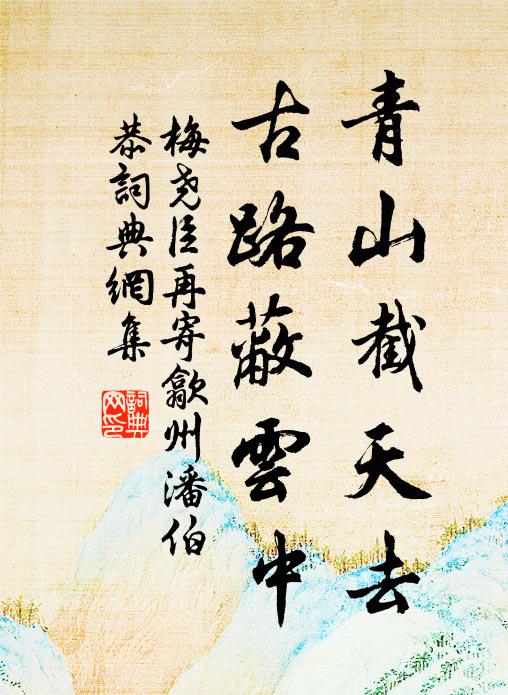 青山截天去
古路蔽雲中
梅尧臣再寄歙州潘伯
恭詞典網集
詞典
网印